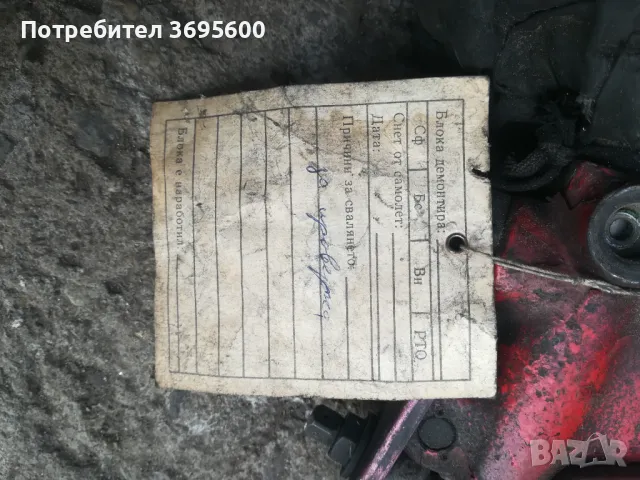 Потребител 3695600
Блока демонтира:
Сф Вн РТО
Снет от самолет:
Дата:
Причини за свалянето:
за проверка
Блока е наработил
BAZAR